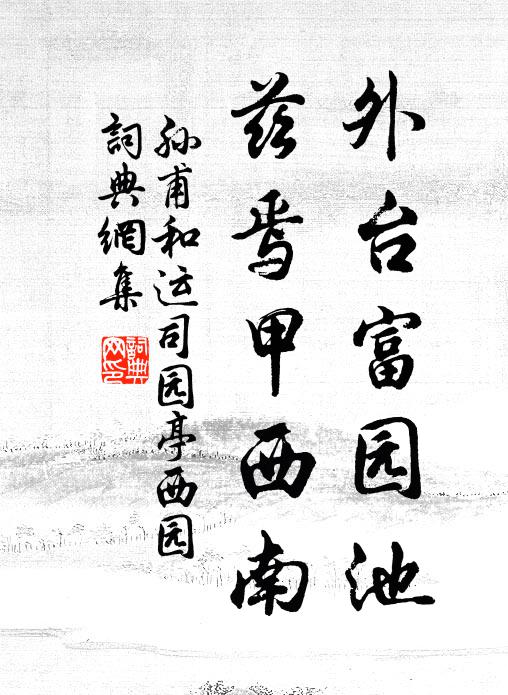 外台富园池
兹焉甲西南
孙甫和运司园亭西园
詞典網集
詞典網印